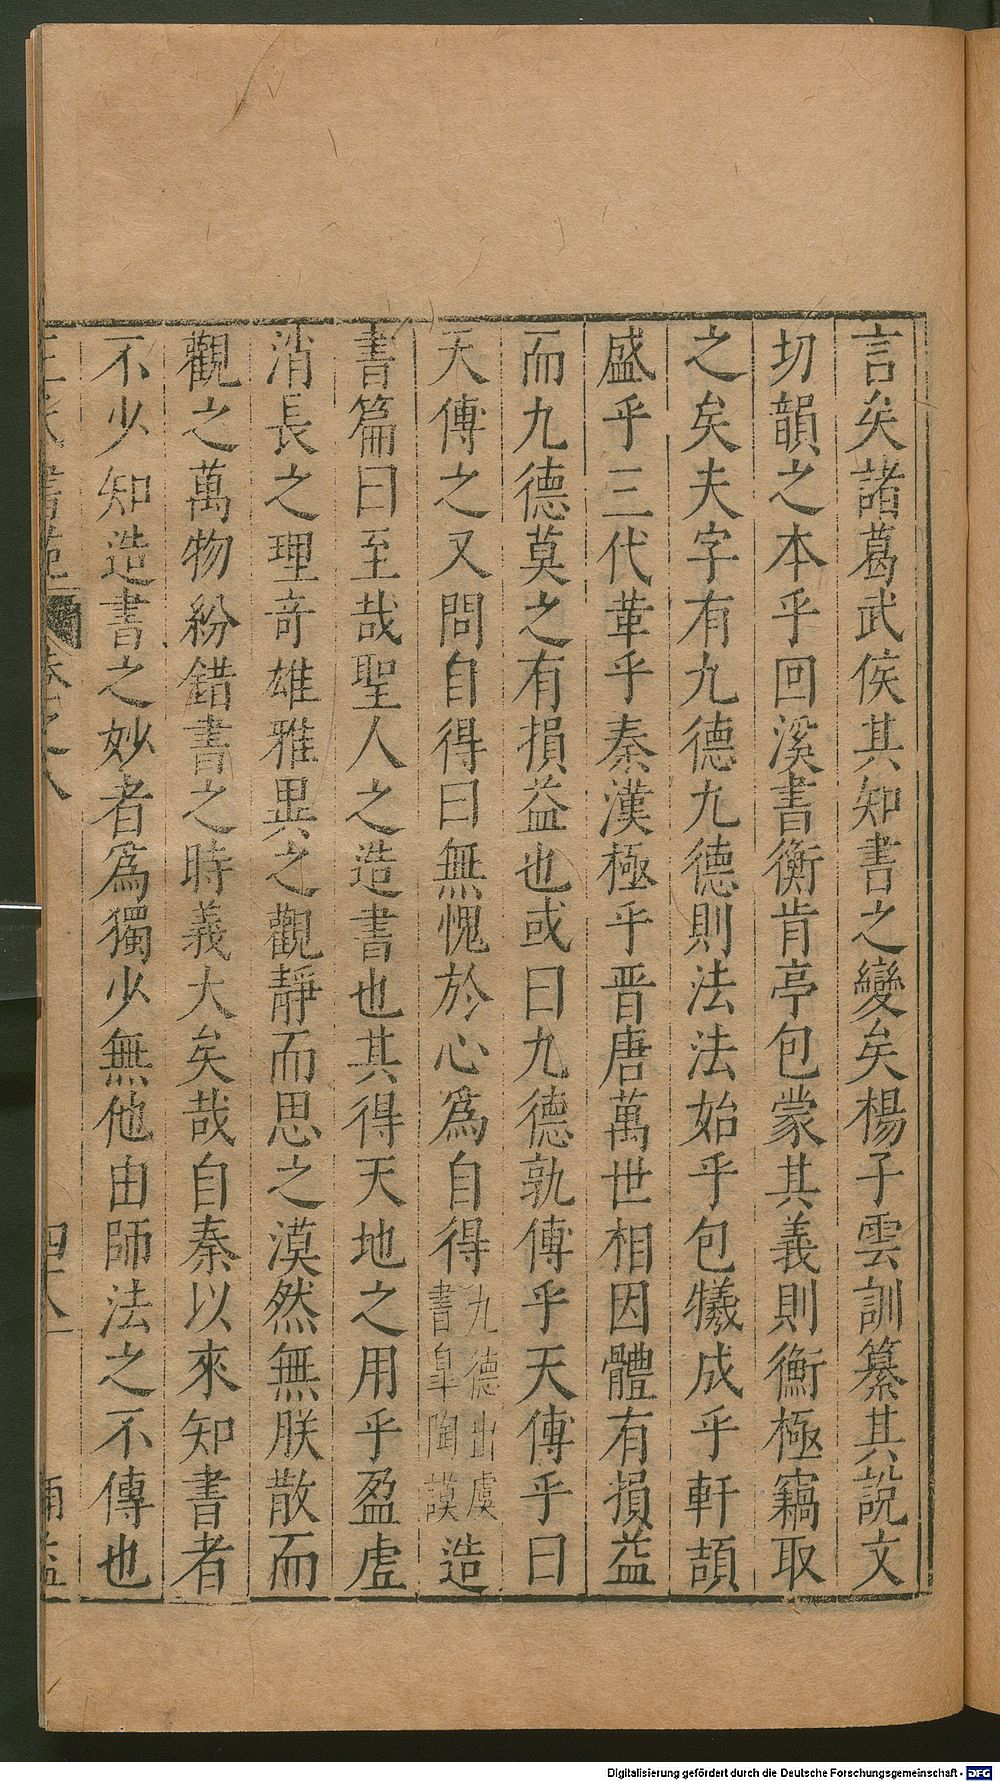 言矣諸葛武侯其知書之變矣楊子雲訓纂其說文
切韻之本乎回溪書衡肯亭包蒙其義則衡極竊取
之矣夫字有九德九德則法法始乎包犧成乎軒頡
盛乎三代革乎秦漢極乎晋唐萬世相因體有損益
而九德莫之有損益也或曰九德孰傳乎天傳乎曰
天傳之又問自得曰無愧於心爲自得九德出虞書皐陶謨造
書篇曰至哉聖人之造書也其得天地之用乎盈虗
消長之理竒雄雅異之觀靜而思之漠然無朕散而
觀之萬物紛錯書之時義大矣哉自秦以來知書者
不少知造書之妙者爲獨少無他由師法之不傳也
王氏書苑 卷之八 四十八
Digitalisierung gefördert durch die Deutsche Forschungsgemeinschaft - DFG